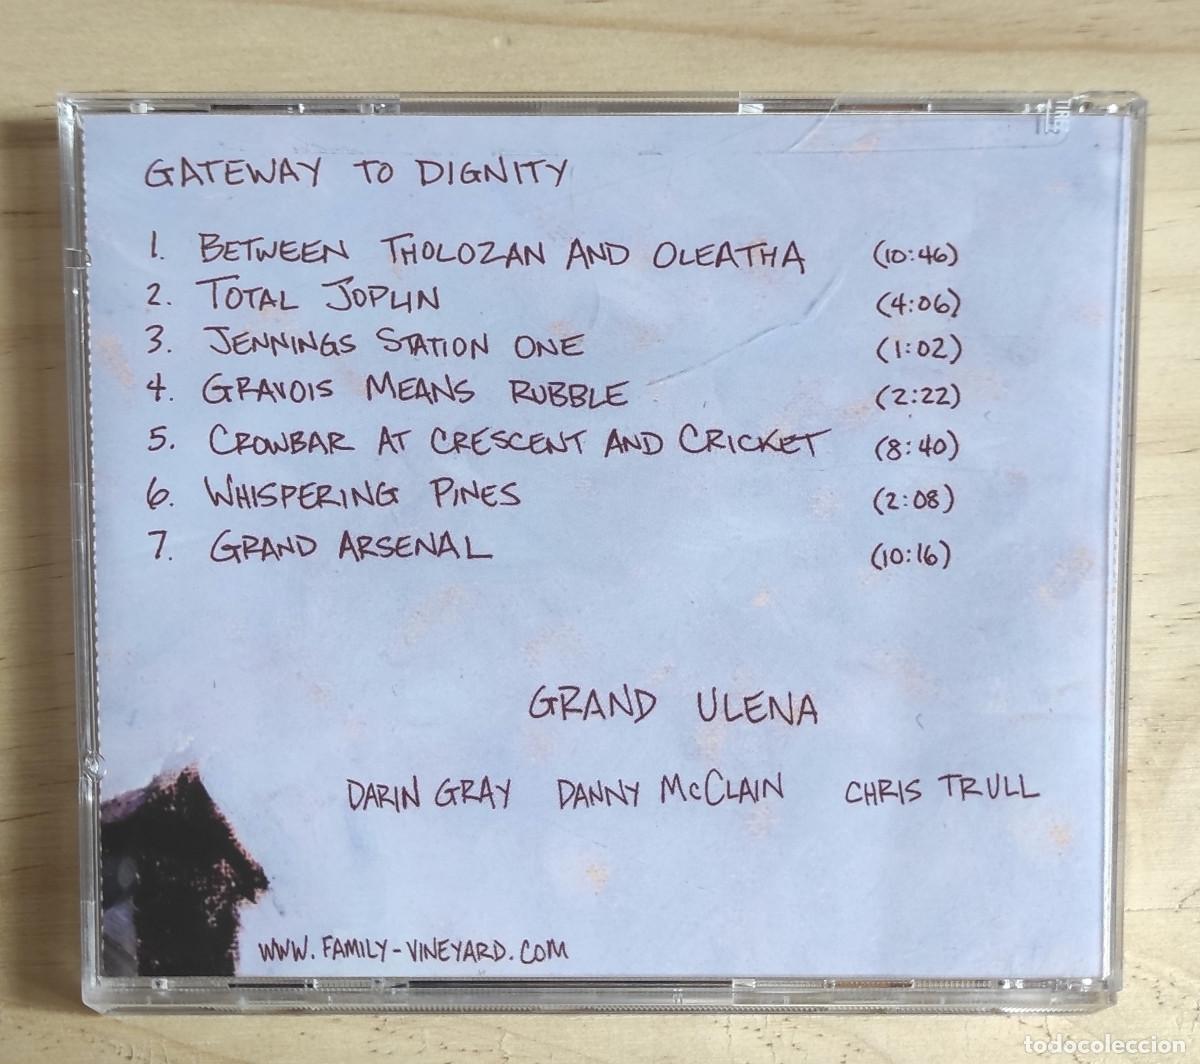 GATEWAY TO DIGNITY
1. BETWEEN THOLOZAN AND OLEATHA (10:46)
2. TOTAL JOPLIN (4:06)
3. JENNINGS STATION ONE (1:02)
4. GRAVOIS MEANS RUBBLE (2:22)
5. CROWBAR AT CRESCENT AND CRICKET (8:40)
6. WHISPERING PINES (2:08)
7. GRAND ARSENAL (10:16)
GRAND ULENA
DARIN GRAY DANNY McCLAIN CHRIS TRULL
WWW.FAMILY-VINEYARD.COM
todocoleccion